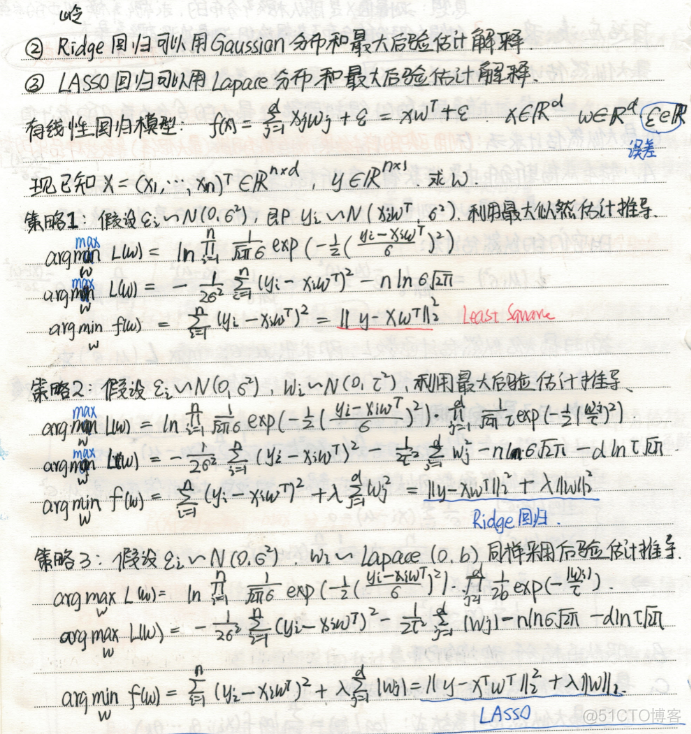 岭
② Ridge 回归可以用 Gaussian 分布和最大后验估计解释.
③ LASSO 回归可以用 Lapace 分布和最大后验估计解释.
有线性回归模型: f(x) = ∑_{j=1}^{d} x_j w_j + ε = xw^T + ε. x∈ℝ^d w∈ℝ^d ε∈ℝ
误差
现已知 X = (x_1, ⋯, x_n)^T ∈ ℝ^{n×d}, y∈ℝ^{n×1}. 求 w.
策略1: 假设 ε_i ∽ N(0, σ²), 即 y_i ∽ N(x_i w^T, σ²). 利用最大似然估计推导.
arg max_w L(w) = ln ∏_{i=1}^{n} 1/(√2π σ) exp(-1/2((y_i - x_i w^T)/σ)²)
arg max_w L(w) = - 1/(2σ²) ∑_{i=1}^{n} (y_i - x_i w^T)² - n ln σ√2π
arg min_w f(w) = ∑_{i=1}^{n} (y_i - x_i w^T)² = ||y - Xw^T||_2^2 Least Square
策略2: 假设 ε_i ∽ N(0, σ²), w_i ∽ N(0, τ²), 利用最大后验估计推导.
arg max_w L(w) = ln ∏_{i=1}^{n} 1/(√2π σ) exp(-1/2((y_i - x_i w^T)/σ)²) · ∏_{j=1}^{d} 1/(√2π τ) exp(-1/2(w_j/τ)²)
arg max_w L(w) = - 1/(2σ²) ∑_{i=1}^{n} (y_i - x_i w^T)² - 1/(2τ²) ∑_{j=1}^{d} w_j² - n ln σ√2π - d ln τ√2π.
arg min_w f(w) = ∑_{i=1}^{n} (y_i - x_i w^T)² + λ ∑_{j=1}^{d} w_j² = ||y - Xw^T||_2^2 + λ||w||_2^2
Ridge 回归.
策略3: 假设 ε_i ∽ N(0, σ²), w_i ∽ Lapace (0, b) 同样采用后验估计推导.
arg max_w L(w) = ln ∏_{i=1}^{n} 1/(√2π σ) exp(-1/2((y_i - x_i w^T)/σ)²) · ∏_{j=1}^{d} 1/(2b) exp(-|w_j|/τ).
arg max_w L(w) = - 1/(2σ²) ∑_{i=1}^{n} (y_i - x_i w^T)² - 1/(2τ²) ∑_{j=1}^{d} |w_j| - n ln σ√2π - d ln τ√2π
arg min_w f(w) = ∑_{i=1}^{n} (y_i - x_i w^T)² + λ ∑_{j=1}^{d} |w_j| = ||y - X^T w^T||_2^2 + λ||w||_2.
LASSO
@51CTO博客